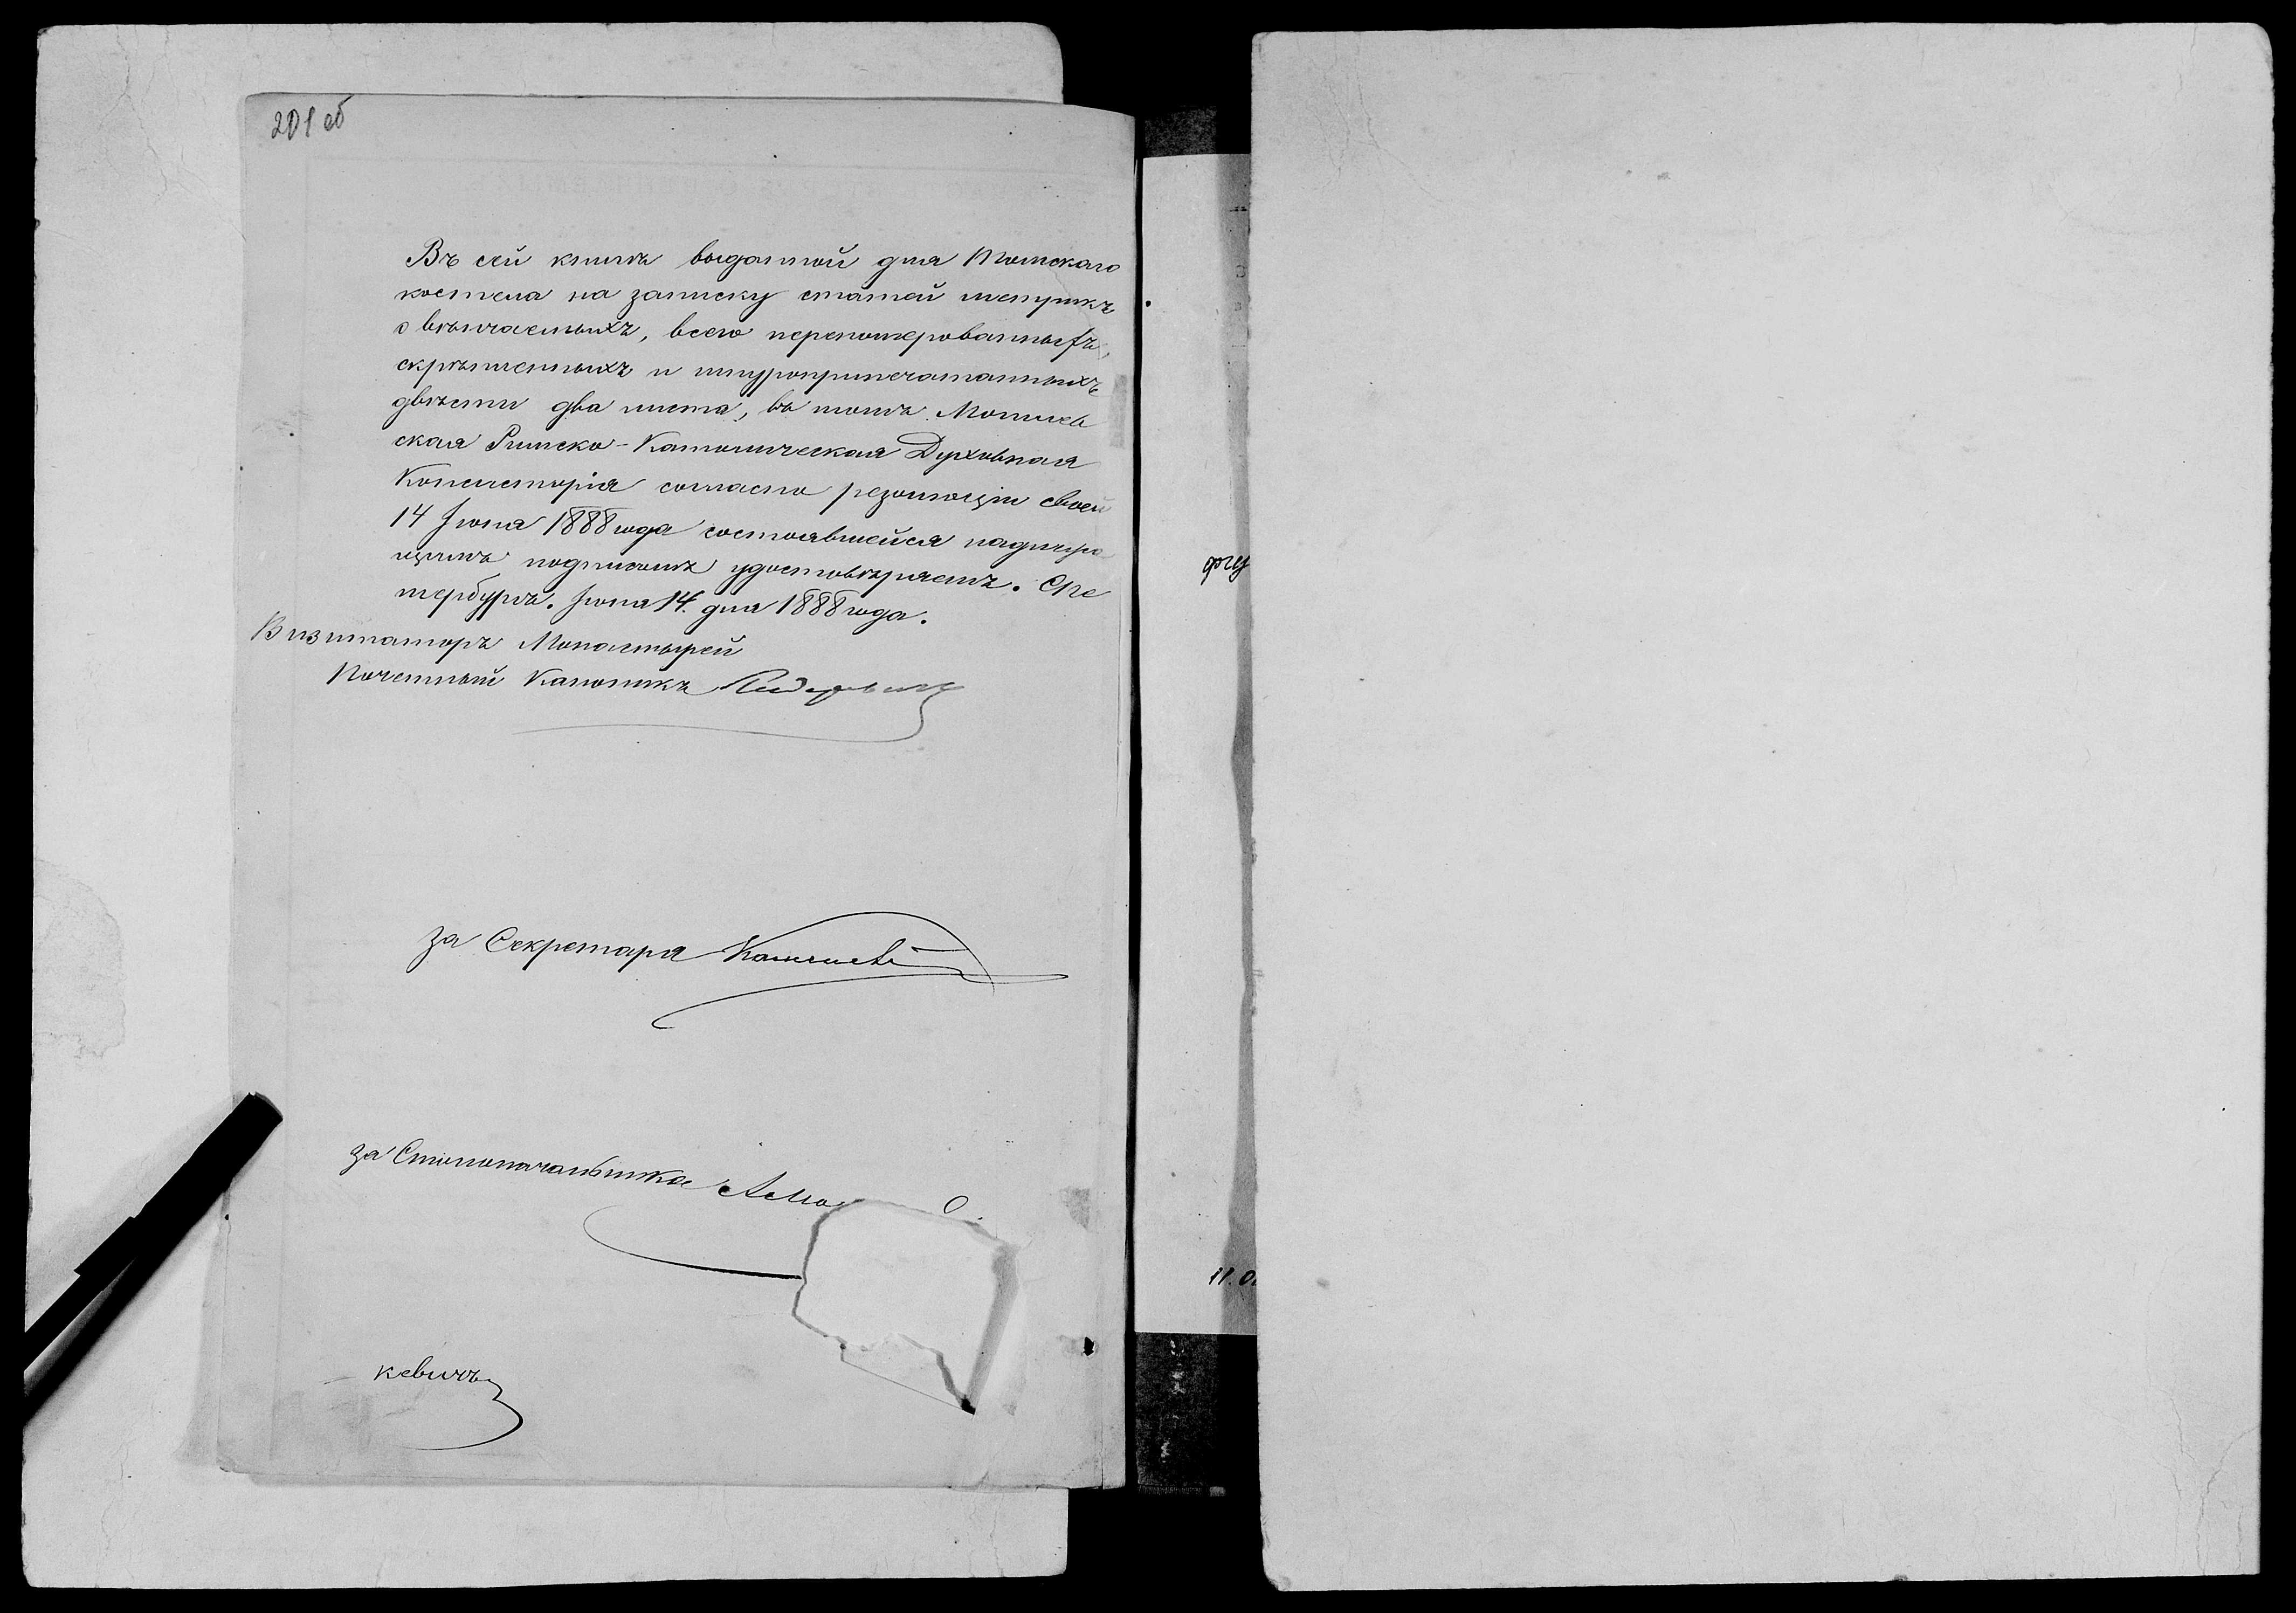 201 об
Въ сей книгѣ выданной для Томскаго
костела на записку статей метрикъ
о вѣнчаемыхъ, всего перенумерованныхъ,
скрѣпленныхъ и шнуроприпечатанныхъ
двѣсти два листа, въ томъ Могилев
ская Римско-Католическая Духовная
Консисторія согласно резолюціи своей
14 Іюня 1888 года состоявшейся надлежа
щимъ подписомъ удостовѣряетъ. СПе
тербургъ. Іюня 14. дня 1888 года.
Визитаторъ Монастырей
Почетный Каноникъ
за Секретаря
за Столоначальника
кевичъ
11.0